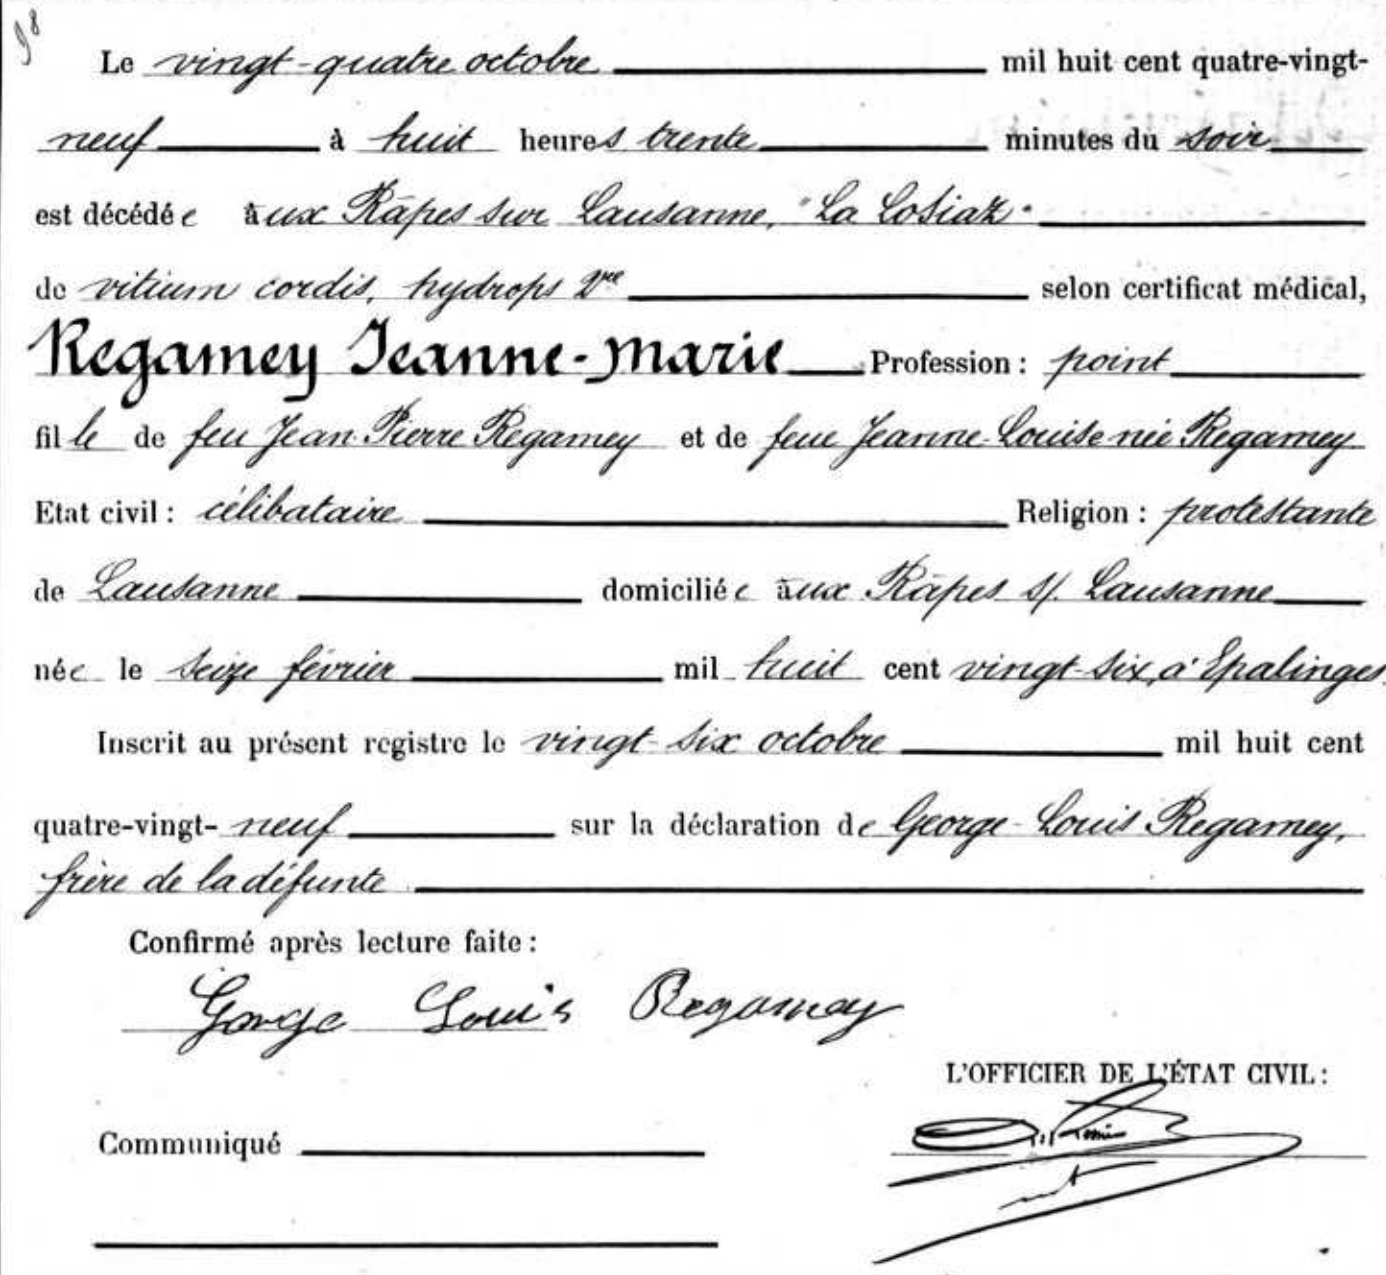 98
Le vingt-quatre octobre mil huit cent quatre-vingt-
neuf à huit heures trente minutes du soir
est décédée aux Râpes sur Lausanne, "La Losiaz"
de vitium cordis, hydrops selon certificat médical,
Regamey Jeanne-Marie Profession : point
fille de feu Jean-Pierre Regamey et de feue Jeanne-Louise née Regamey
Etat civil : célibataire Religion : protestante
de Lausanne domiciliée aux Râpes s/. Lausanne
née le seize février mil huit cent vingt-six, à Epalinges.
Inscrit au présent registre le vingt-six octobre mil huit cent
quatre-vingt- neuf sur la déclaration de George-Louis Regamey,
frère de la défunte
Confirmé après lecture faite :
George Louis Regamey
L'OFFICIER DE L'ÉTAT CIVIL :
Communiqué